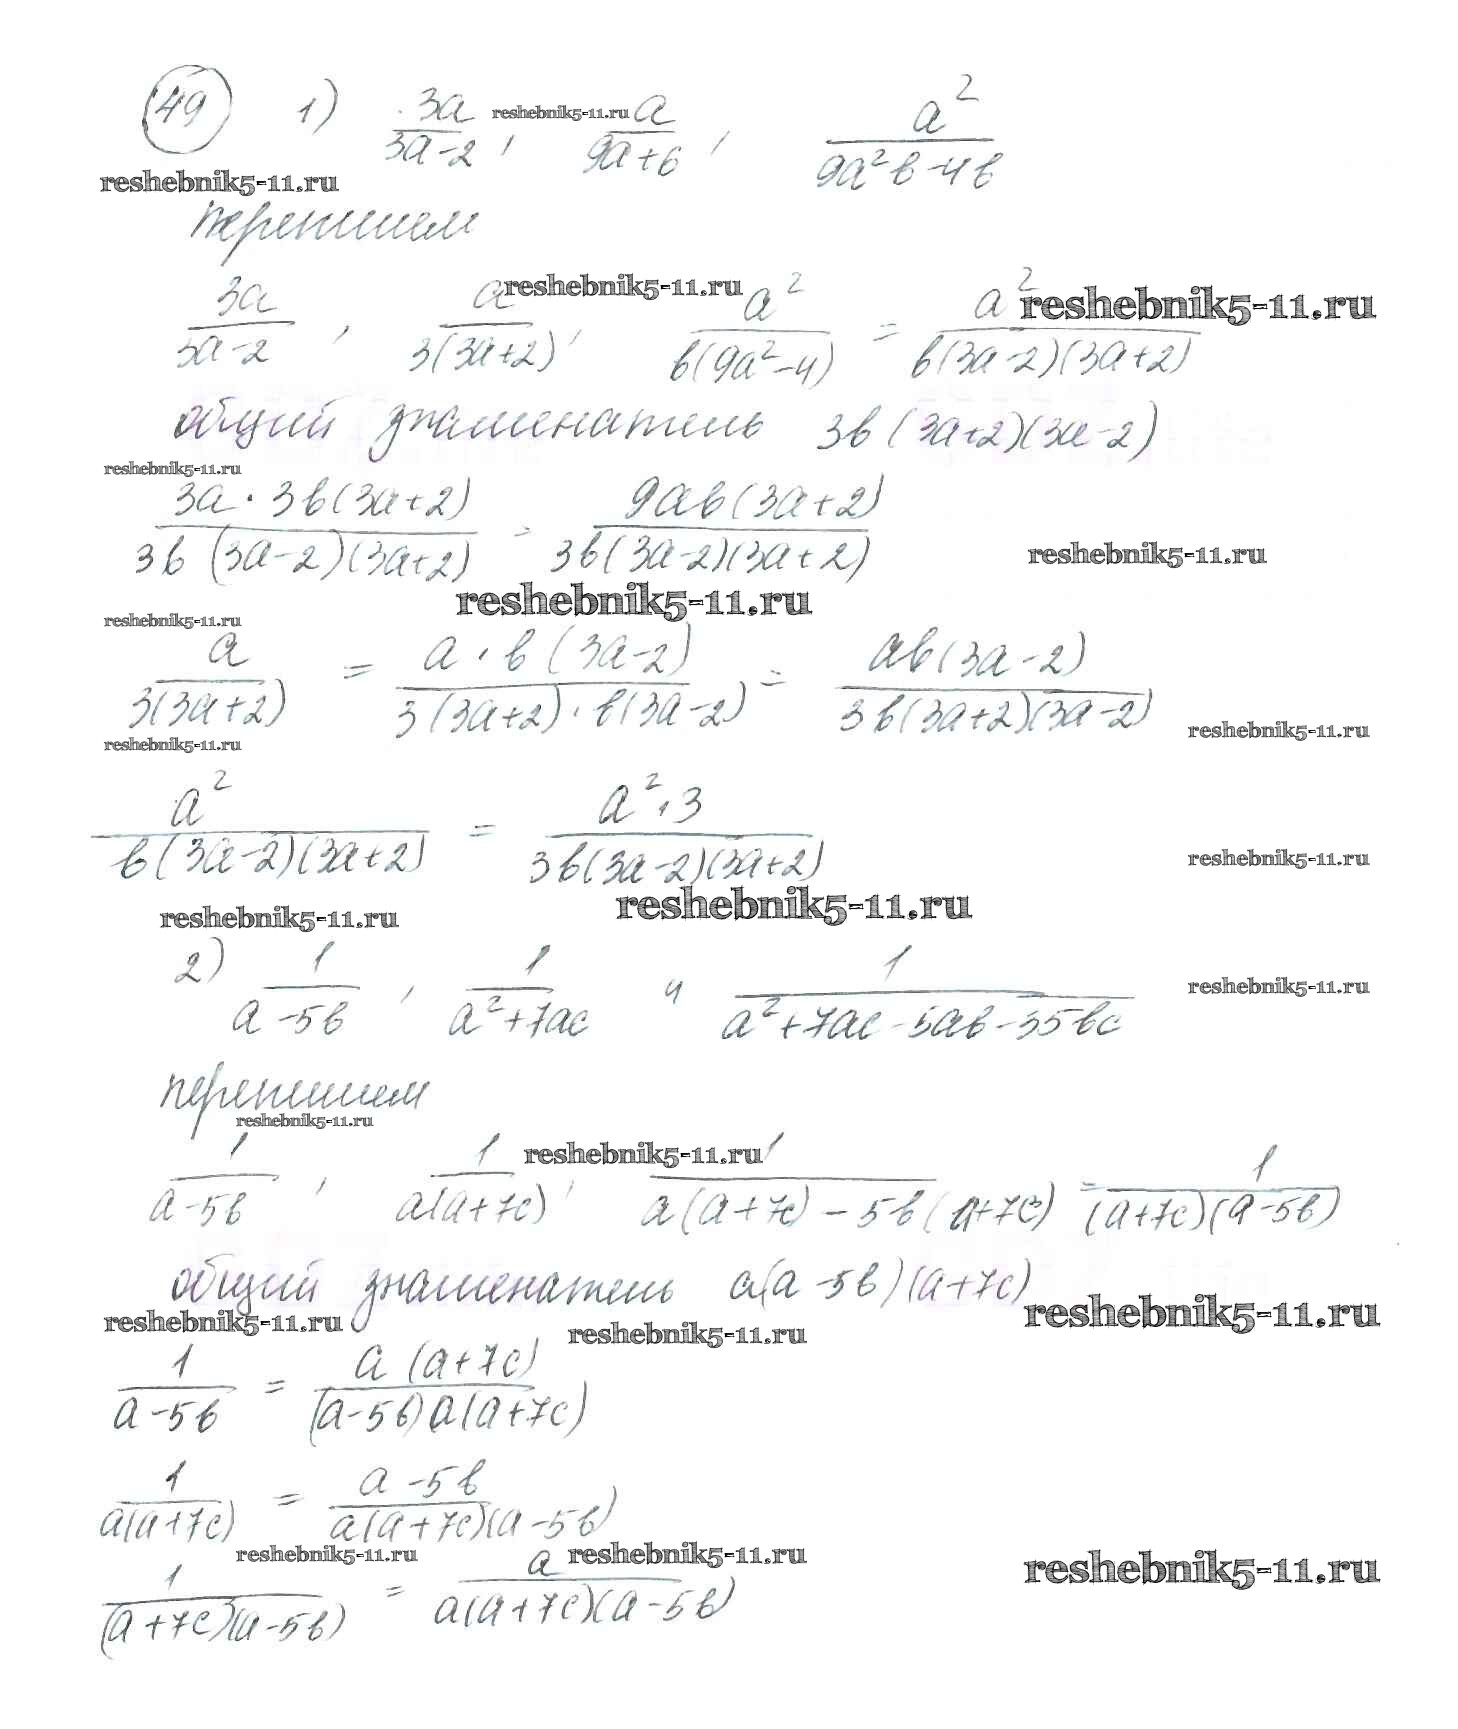 49 1) 3a/(3a-2), a/(9a+6), a²/(9a²в-4в)
reshebnik5-11.ru
reshebnik5-11.ru
перепишем
3a/(3a-2), a/(3(3a+2)), a²/(в(9a²-4)) = a²/(в(3a-2)(3a+2))
reshebnik5-11.ru reshebnik5-11.ru
общий знаменатель 3в(3a+2)(3a-2)
reshebnik5-11.ru
3a·3в(3a+2)/(3в(3a-2)(3a+2)) = 9aв(3a+2)/(3в(3a-2)(3a+2))
reshebnik5-11.ru
reshebnik5-11.ru
reshebnik5-11.ru
a/(3(3a+2)) = a·в(3a-2)/(3(3a+2)·в(3a-2)) = aв(3a-2)/(3в(3a+2)(3a-2))
reshebnik5-11.ru
reshebnik5-11.ru
a²/(в(3a-2)(3a+2)) = a²·3/(3в(3a-2)(3a+2))
reshebnik5-11.ru
reshebnik5-11.ru reshebnik5-11.ru
2) 1/(a-5в), 1/(a²+7ac) и 1/(a²+7ac-5aв-35вc)
reshebnik5-11.ru
перепишем
reshebnik5-11.ru
1/(a-5в), 1/(a(a+7c)), 1/(a(a+7c)-5в(a+7c)) = 1/((a+7c)(a-5в))
reshebnik5-11.ru
общий знаменатель a(a-5в)(a+7c)
reshebnik5-11.ru reshebnik5-11.ru reshebnik5-11.ru
1/(a-5в) = a(a+7c)/((a-5в)a(a+7c))
1/(a(a+7c)) = (a-5в)/(a(a+7c)(a-5в))
reshebnik5-11.ru reshebnik5-11.ru reshebnik5-11.ru
1/((a+7c)(a-5в)) = a/(a(a+7c)(a-5в))